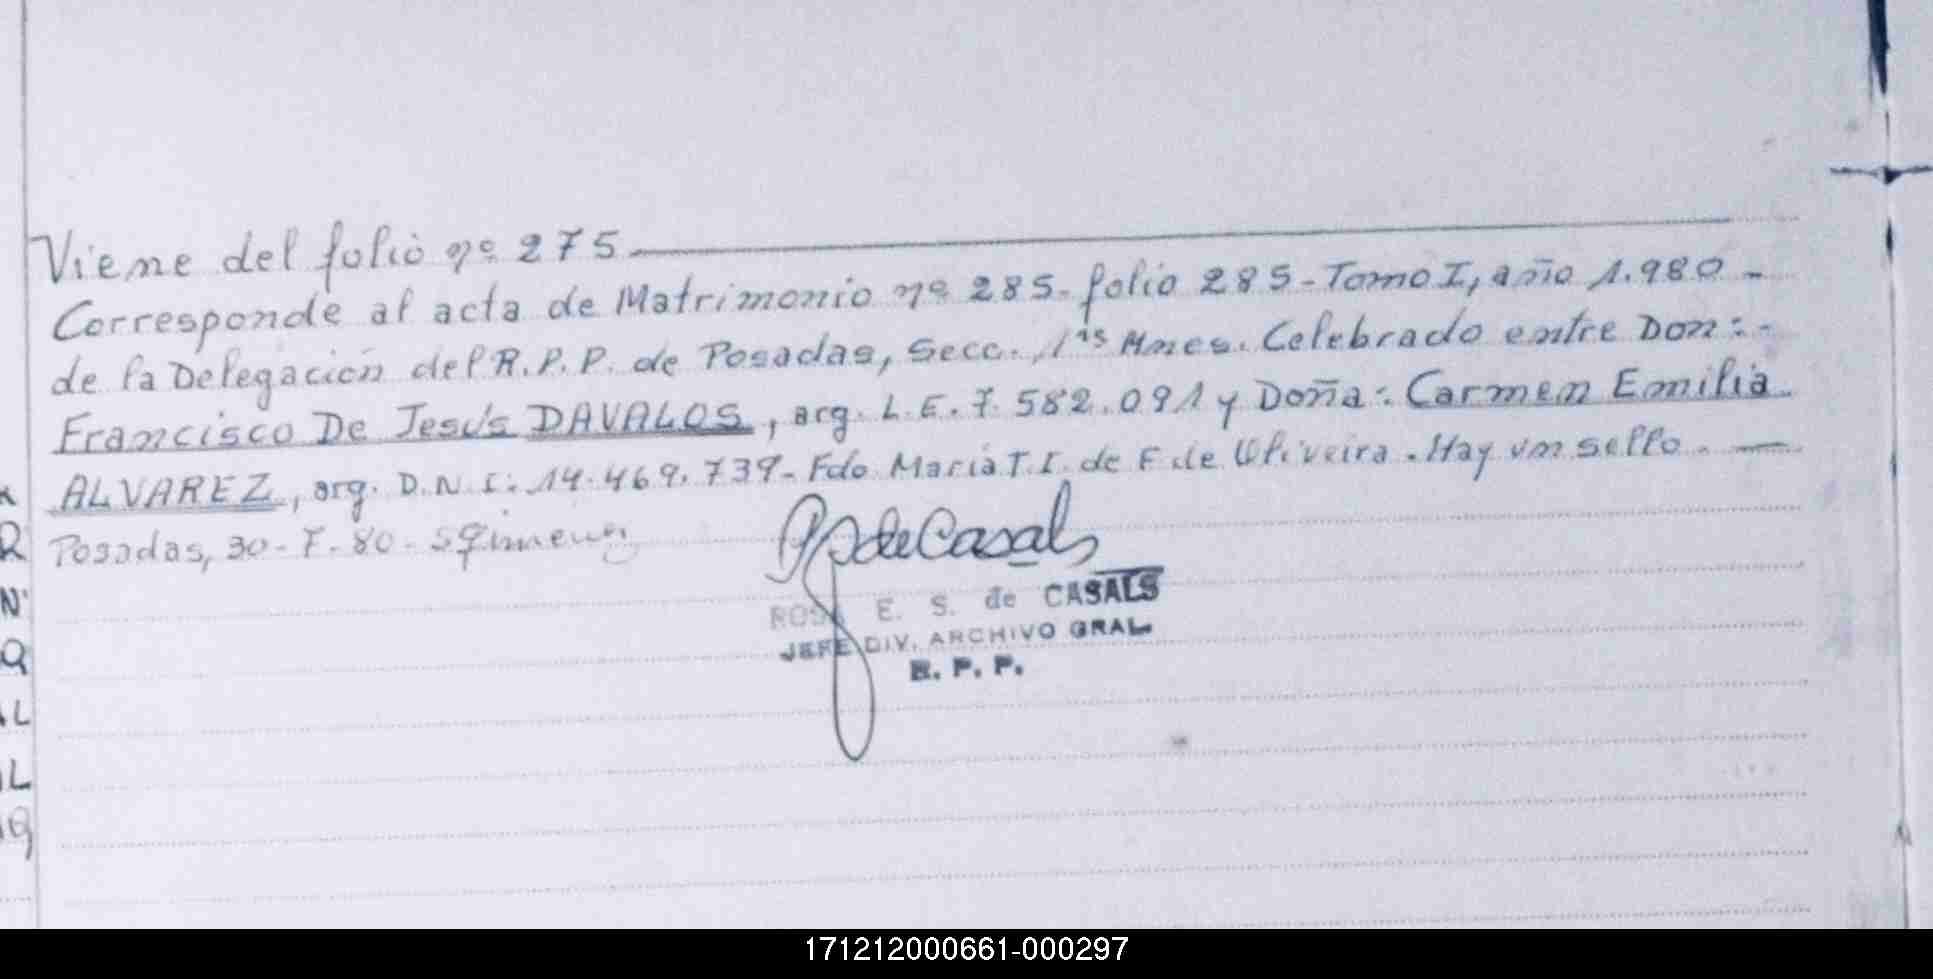 Viene del folio nº 275
Corresponde al acta de Matrimonio nº 285. folio 285 - Tomo I, año 1.980 -
de la Delegación del R.P.P. de Posadas, Secc. Mnes. Celebrado entre Don: -
Francisco De Jesús DAVALOS, arg. L.E. 7.582.091 y Doña: Carmen Emilia
ALVAREZ, arg. D.N.I: 14.469.739 - Fdo María T. I. de F de Oliveira. Hay un sello. —
Posadas, 30-7-80 -
de Casals
ROSA E. S. de CASALS
JEFE DIV. ARCHIVO GRAL
R. P. P.
171212000661-000297